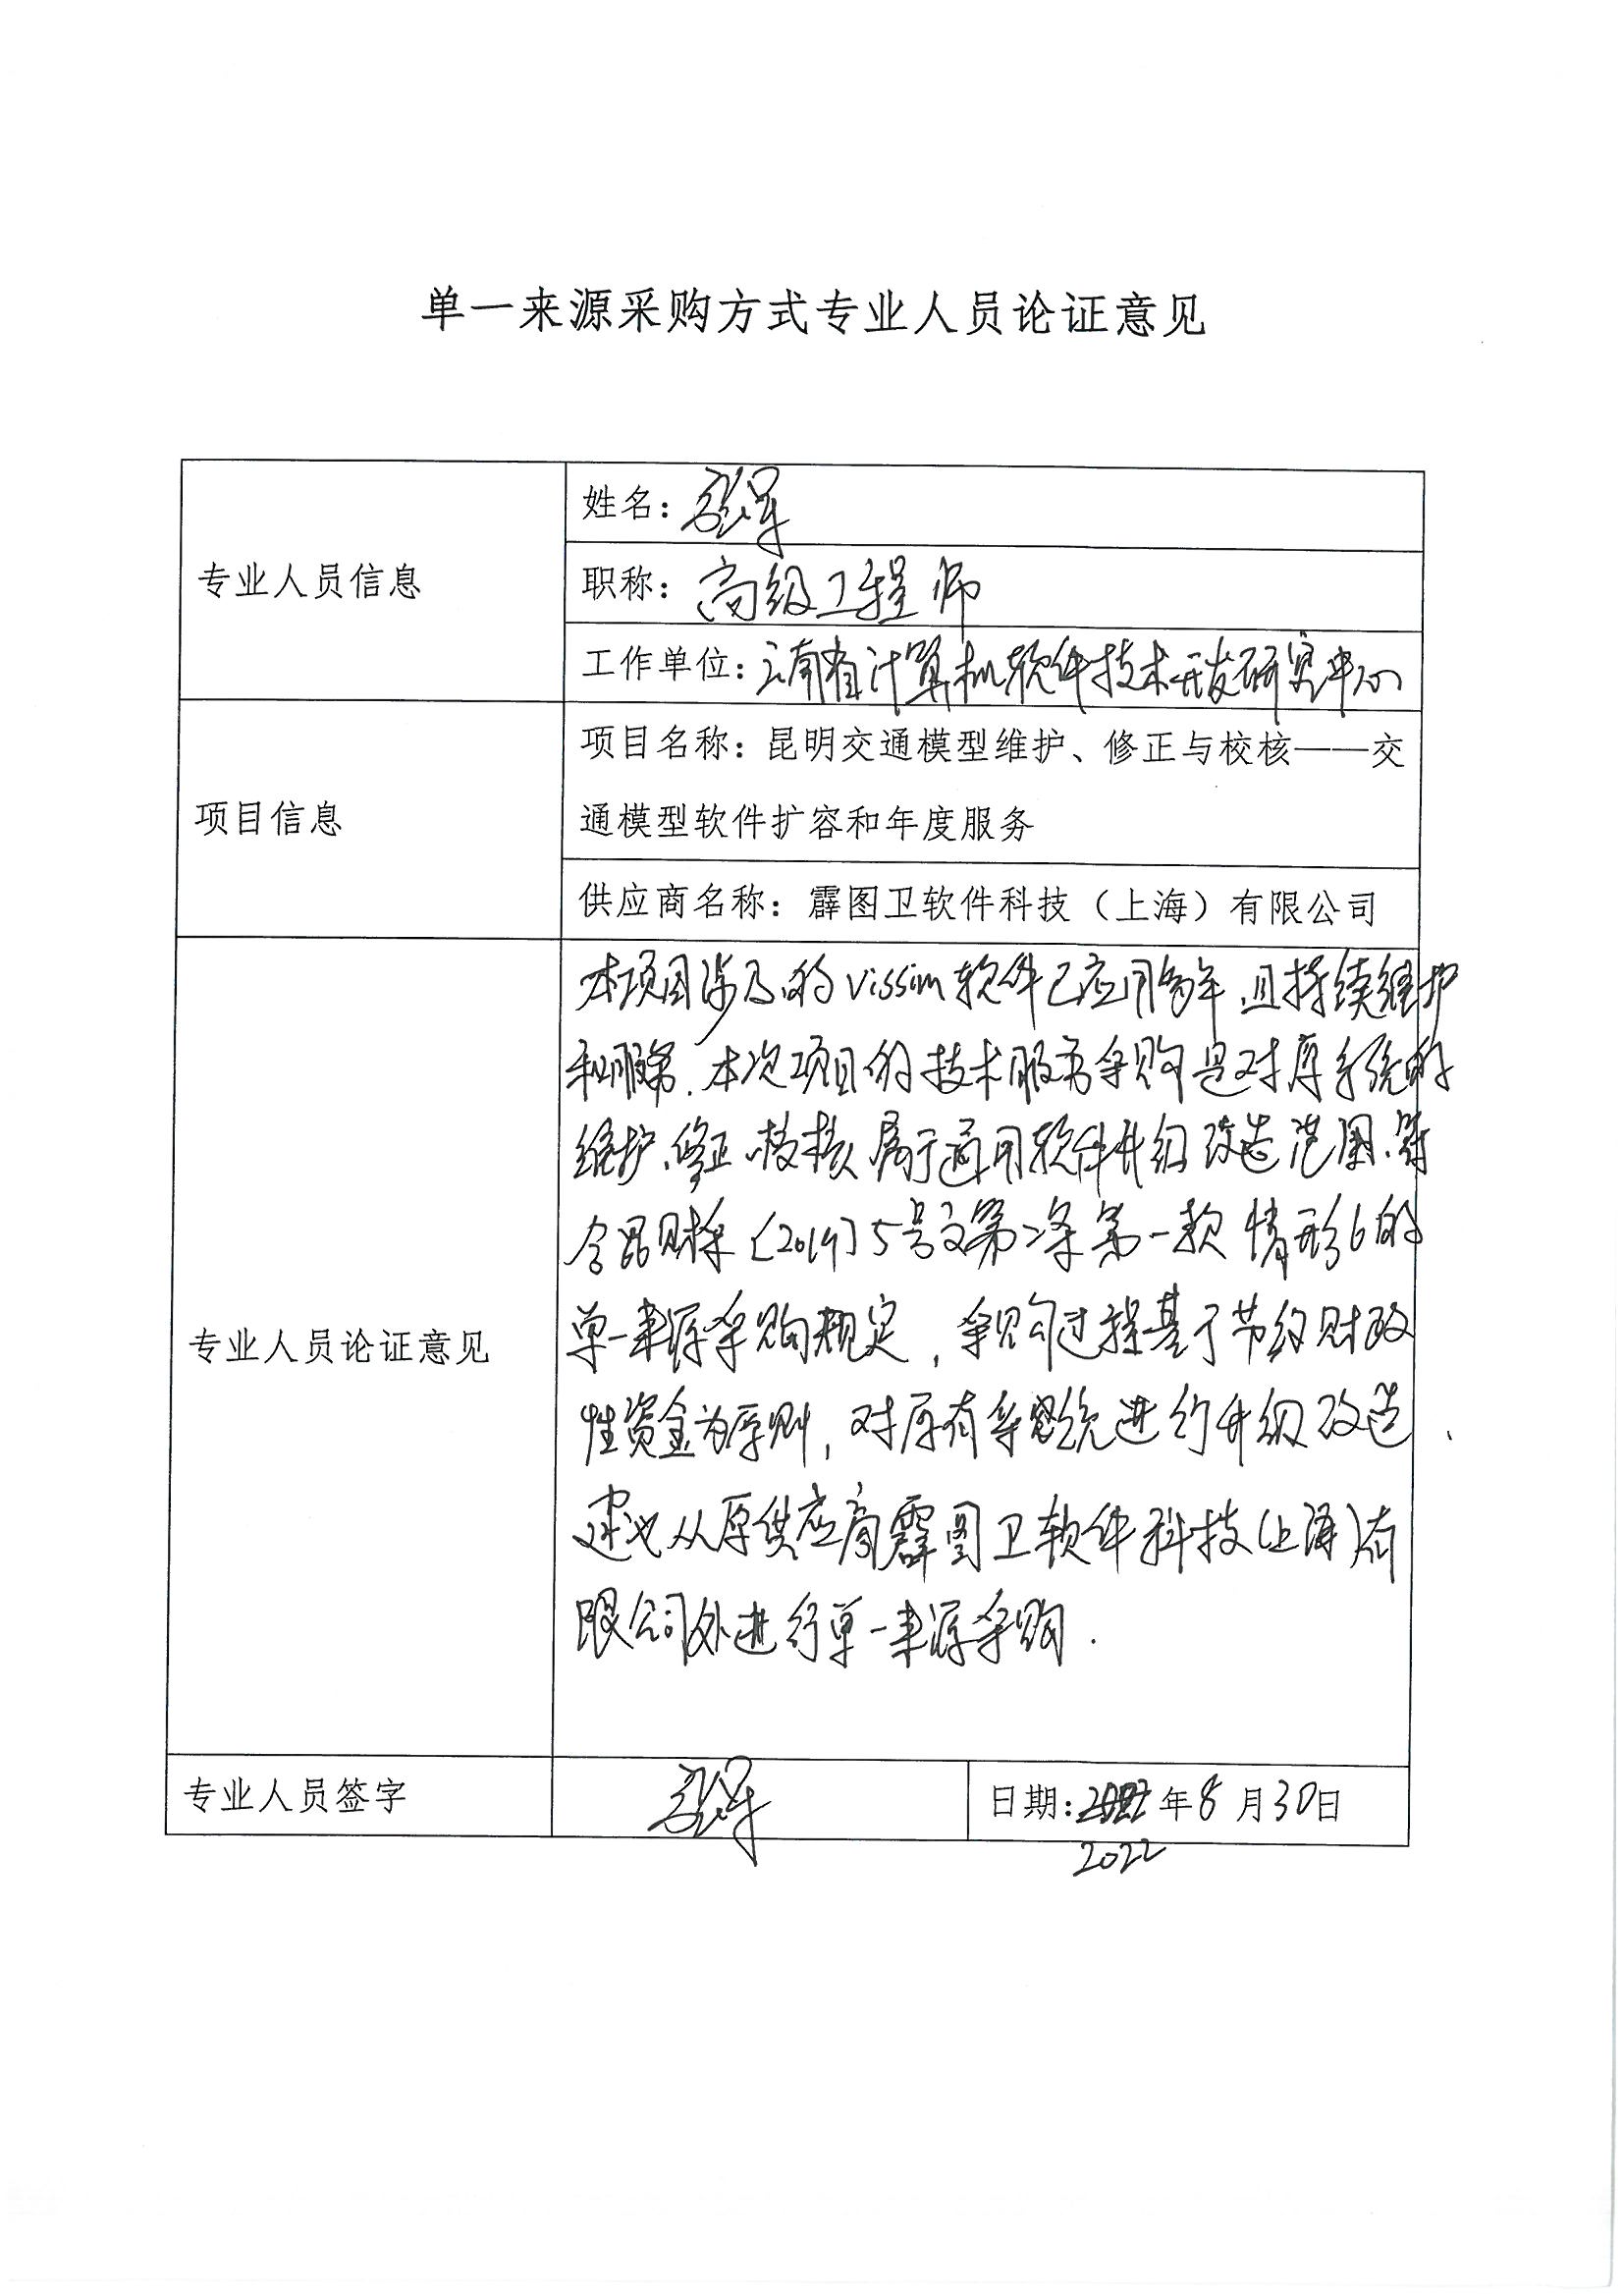 单一来源采购方式专业人员论证意见
专业人员信息
姓名：
职称：高级工程师
工作单位：云南省计算机软件技术开发研究中心
项目信息
项目名称：昆明交通模型维护、修正与校核——交
通模型软件扩容和年度服务
供应商名称：霹图卫软件科技（上海）有限公司
专业人员论证意见
本项目涉及的Vissim软件已应用多年，且持续维护
和服务．本次项目的技术服务采购是对原系统的
维护、修正、校核，属于通用软件升级改造范围．符
合昆财采〔2019〕5号文第二条第一款情形6的
单一来源采购规定，采购过程基于节约财政
性资金为原则，对原有系统进行升级改造．
建议从原供应商霹图卫软件科技（上海）有
限公司处进行单一来源采购．
专业人员签字
日期：年8月30日
2022